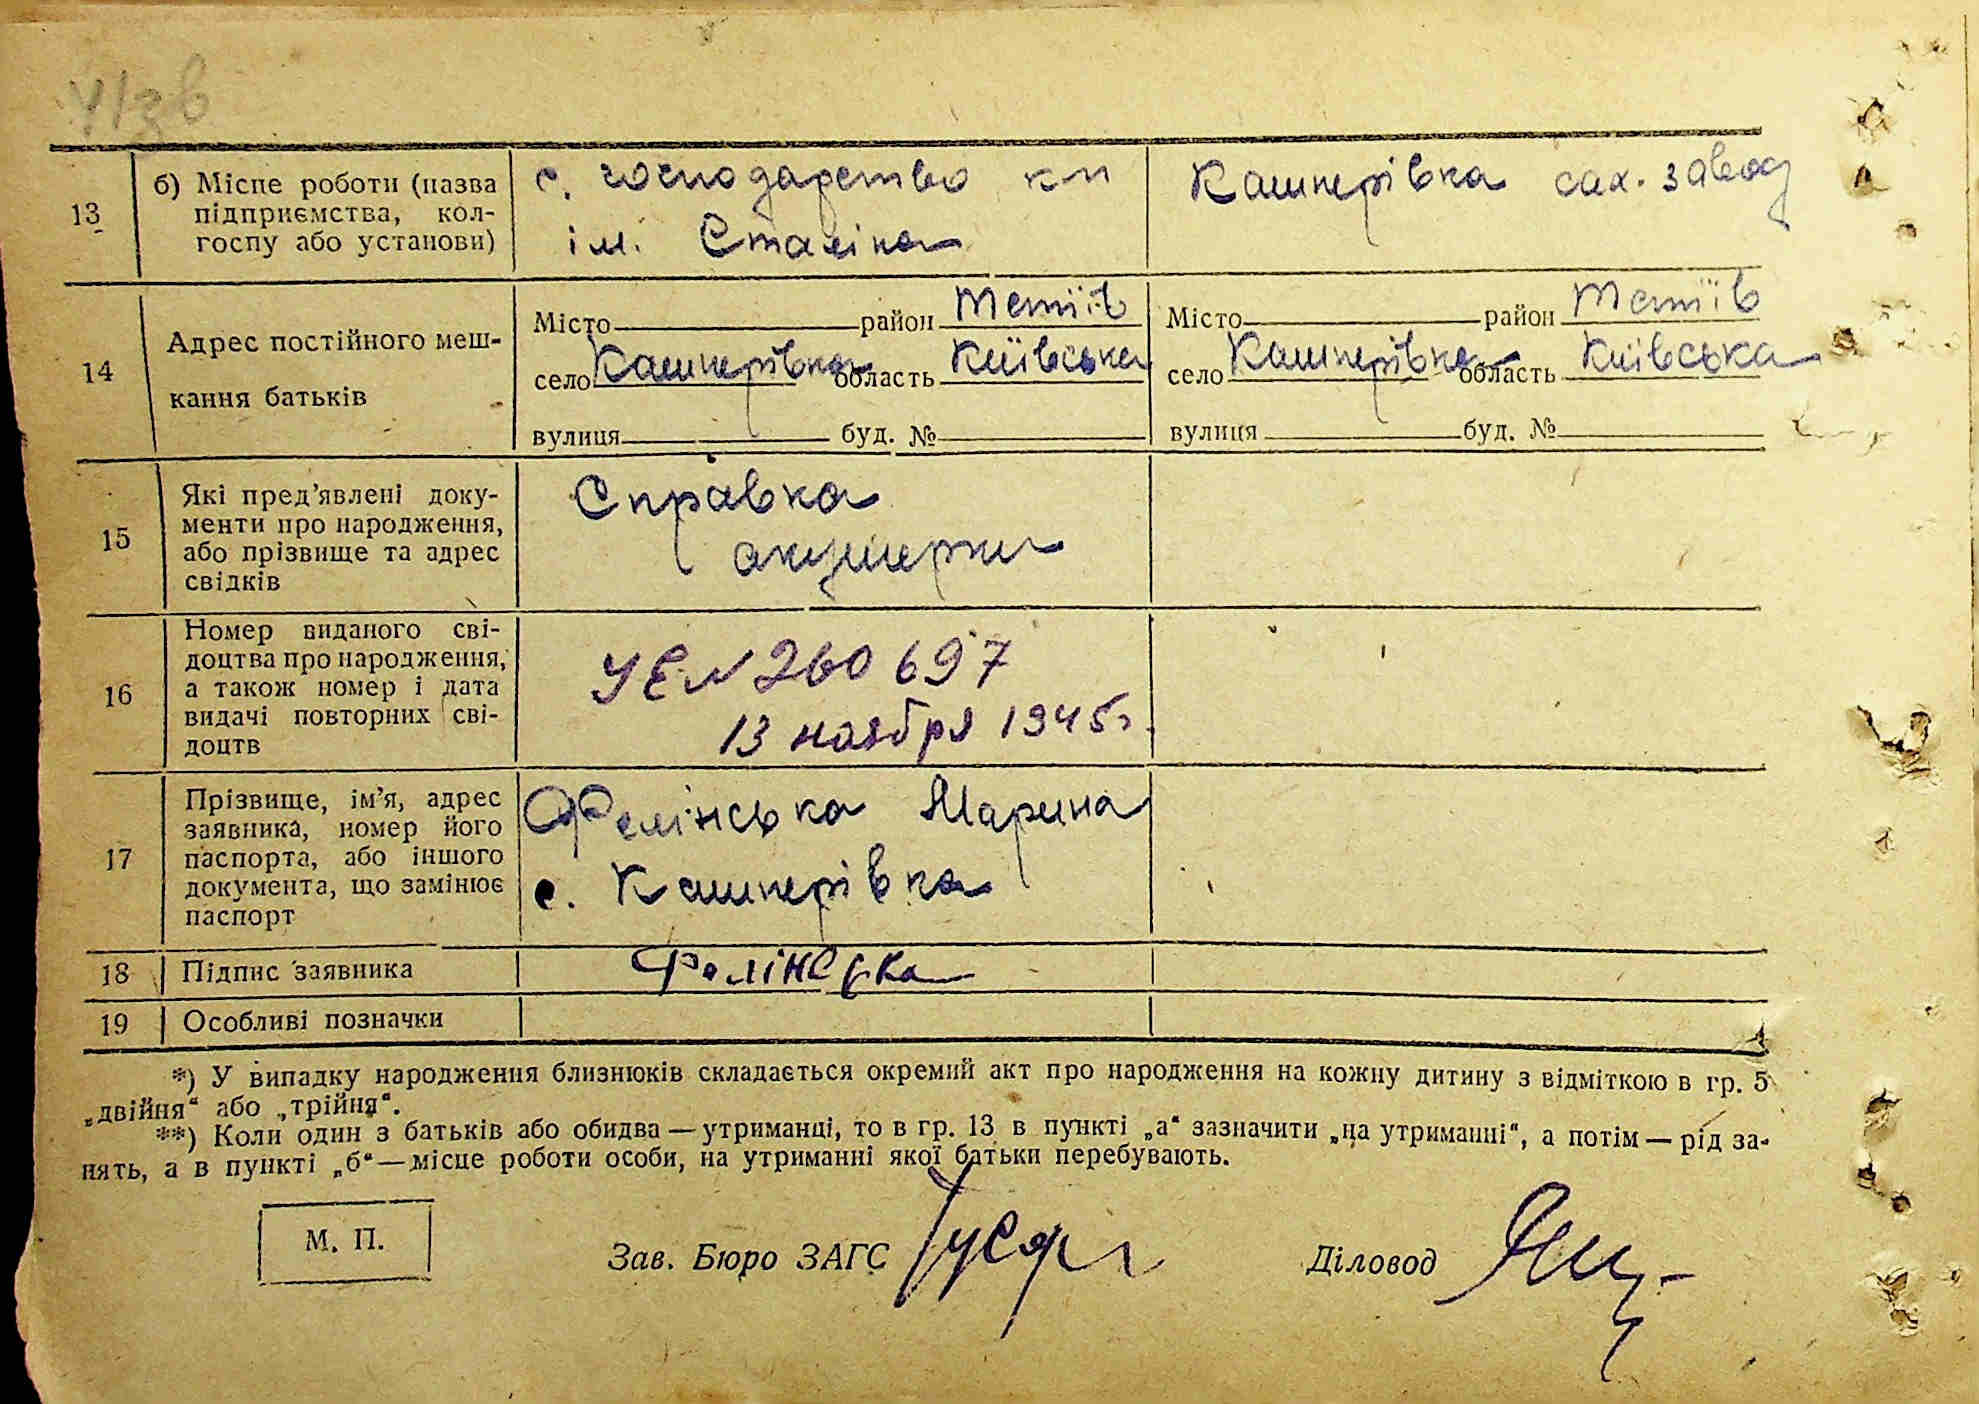 13 б) Місце роботи (назва
підприємства, кол-
госпу або установи)
с. господарство кп
ім. Сталіна
Кашперівка сах. завод
14 Адрес постійного меш-
кання батьків
Місто район Тетіїв
село Кашперівка область Київська
вулиця буд. №
Місто район Тетіїв
село Кашперівка область Київська
вулиця буд. №
15 Які пред’явлені доку-
менти про народження,
або прізвище та адрес
свідків
Справка
акушерки
16 Номер виданого сві-
доцтва про народження,
а також номер і дата
видачі повторних сві-
доцтв
УЕ № 260697
13 ноября 1945 г.
17 Прізвище, ім’я, адрес
заявника, номер його
паспорта, або іншого
документа, що замінює
паспорт
Фелінська Марина
с. Кашперівка
18 Підпис заявника
Фелінська
19 Особливі позначки
*) У випадку народження близнюків складається окремий акт про народження на кожну дитину з відміткою в гр. 5
„двійня“ або „трійня“.
**) Коли один з батьків або обидва — утриманці, то в гр. 13 в пункті „а“ зазначити „на утриманні“, а потім — рід за-
нять, а в пункті „б“ — місце роботи особи, на утриманні якої батьки перебувають.
М. П.
Зав. Бюро ЗАГС
Діловод